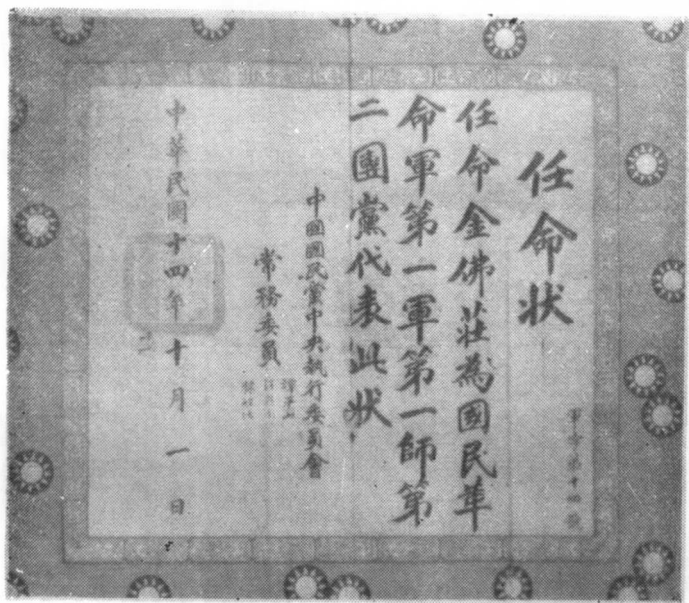 任命状
任命金佛莊為國民革
命軍第一軍第一師第
二團黨代表此状
中國國民黨中央執行委員會
常務委員
中華民國十四年十月一日